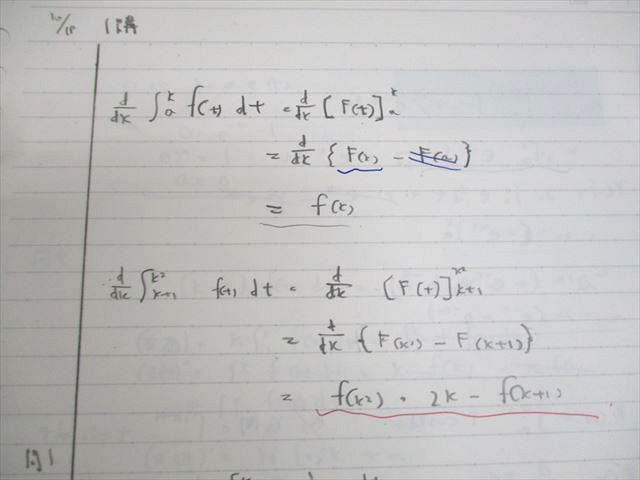 10/18 1講
d/dx ∫_a^x f(t) dt = d/dx [F(t)]_a^x
= d/dx {F(x) - F(a)}
= f(x)
d/dx ∫_{x+1}^{x²} f(t) dt = d/dx [F(t)]_{x+1}^{x²}
= d/dx {F(x²) - F(x+1)}
= f(x²)・2x - f(x+1)
例1